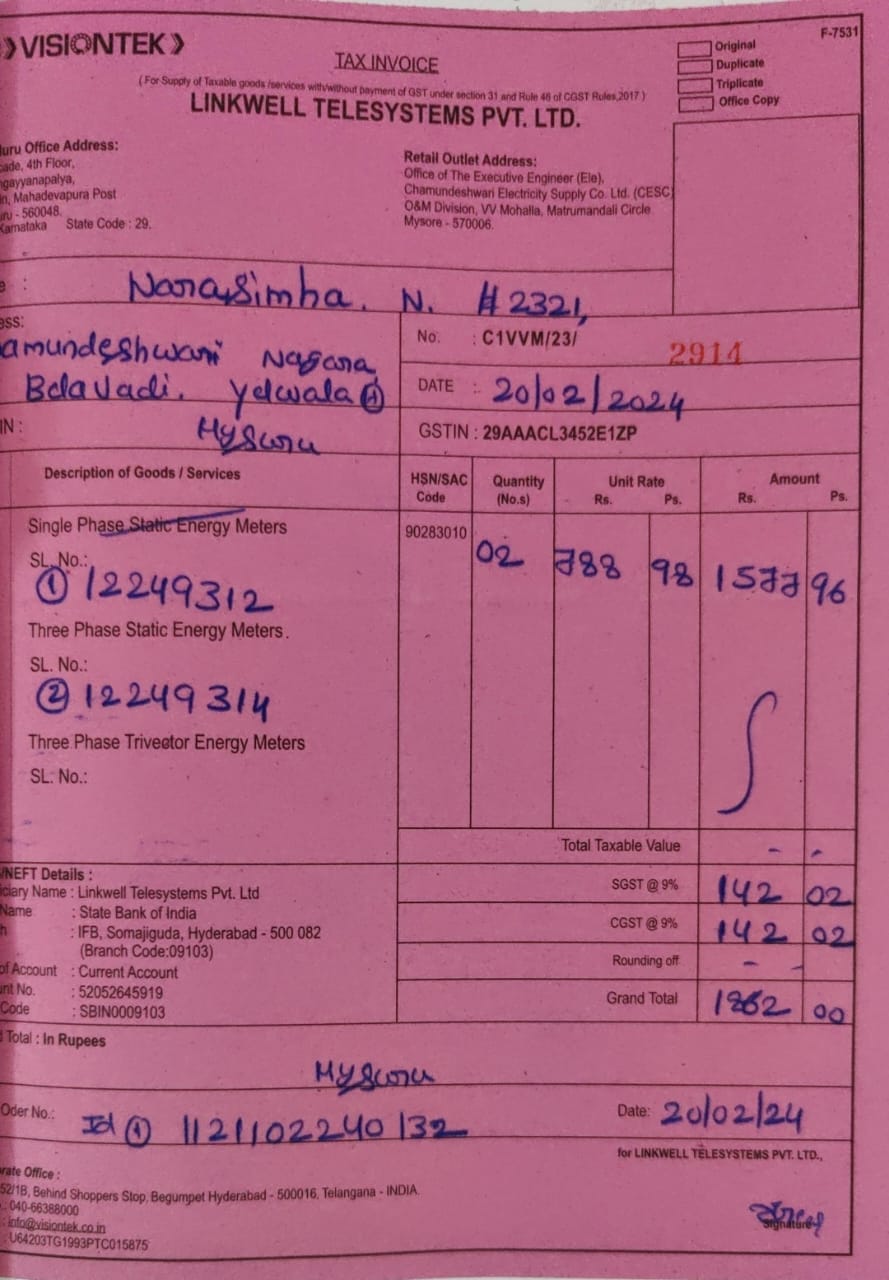 VISIONTEK
F-7531
TAX INVOICE
( For Supply of Taxable goods /services with/without payment of GST under section 31 and Rule 46 of CGST Rules,2017 )
LINKWELL TELESYSTEMS PVT. LTD.
Original
Duplicate
Triplicate
Office Copy
uru Office Address:
ade, 4th Floor,
ngayyanapalya,
n, Mahadevapura Post
uru - 560048.
Karnataka State Code : 29.
Retail Outlet Address:
Office of The Executive Engineer (Ele),
Chamundeshwari Electricity Supply Co. Ltd. (CESC)
O&M Division, VV Mohalla, Matrumandali Circle
Mysore - 570006.
e : Narasimha. N. #2321,
ess:
amundeshwari Nagara
Belavadi. Yelwala (H)
IN : Mysuru
No. : C1VVM/23/ 2914
DATE : 20/02/2024
GSTIN : 29AAACL3452E1ZP
Description of Goods / Services HSN/SAC Code Quantity (No.s) Unit Rate Rs. Ps. Amount Rs. Ps.
Single Phase Static Energy Meters 90283010 02 788 98 1577 96
SL. No.:
① 12249312
Three Phase Static Energy Meters.
SL. No.:
② 12249314
Three Phase Trivector Energy Meters
SL. No.:
Total Taxable Value - -
SGST @ 9% 142 02
CGST @ 9% 142 02
Rounding off - -
Grand Total 1862 00
/NEFT Details :
ciary Name : Linkwell Telesystems Pvt. Ltd
Name : State Bank of India
h : IFB, Somajiguda, Hyderabad - 500 082
(Branch Code:09103)
of Account : Current Account
unt No. : 52052645919
Code : SBIN0009103
Total : In Rupees
Mysuru
Oder No.: Id ① 1121102240132
Date: 20/02/24
for LINKWELL TELESYSTEMS PVT. LTD.,
rate Office :
52/1B, Behind Shoppers Stop, Begumpet Hyderabad - 500016, Telangana - INDIA.
: 040-66388000
: info@visiontek.co.in
: U64203TG1993PTC015875
Signature